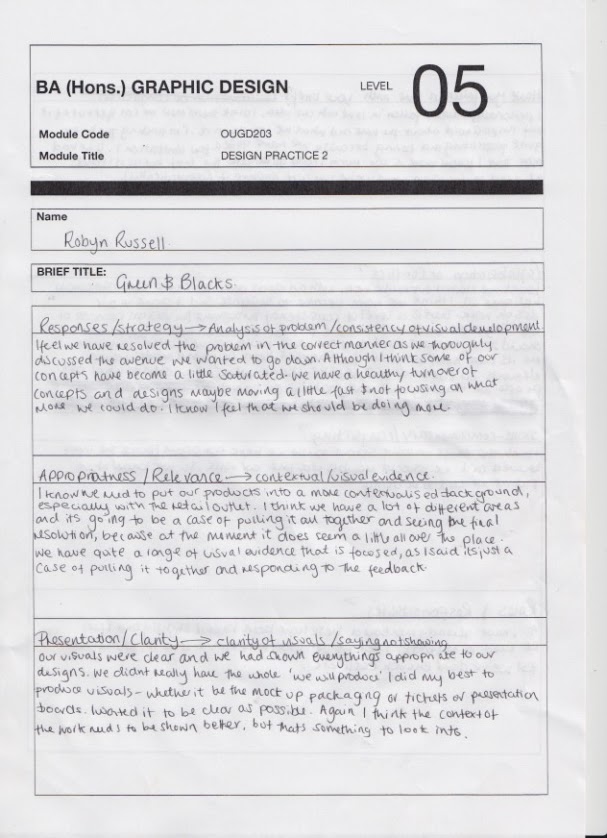 BA (Hons.) GRAPHIC DESIGN
LEVEL
05
Module Code OUGD203
Module Title DESIGN PRACTICE 2
Name
Robyn Russell
BRIEF TITLE: Green & Blacks
Responses/strategy → Analysis of problem/consistency of visual development
I feel we have resolved the problem in the correct manner as we thoroughly
discussed the avenue we wanted to go down. Although I think some of our
concepts have become a little saturated. We have a healthy turnover of
concepts and designs maybe moving a little fast & not focusing on what
more we could do. I know I feel that we should be doing more.
Appropriatness/Relevance → contextual/visual evidence.
I know we need to put our products into a more contextualised background,
especially with the retail outlet. I think we have a lot of different areas
and its going to be a case of pulling it all together and seeing the final
resolution, because at the moment it does seem a little all over the place.
We have quite a range of visual evidence that is focused, as I said its just a
case of pulling it together and responding to the feedback.
Presentation/Clarity → clarity of visuals/saying not showing
Our visuals were clear and we had shown everythings appropriate to our
designs. We didnt really have the whole 'we will produce' I did my best to
produce visuals - whether it be the mock up packaging or tickets or presentation
boards. I wanted it to be clear as possible. Again I think the context of
the work needs to be shown better, but thats something to look into.